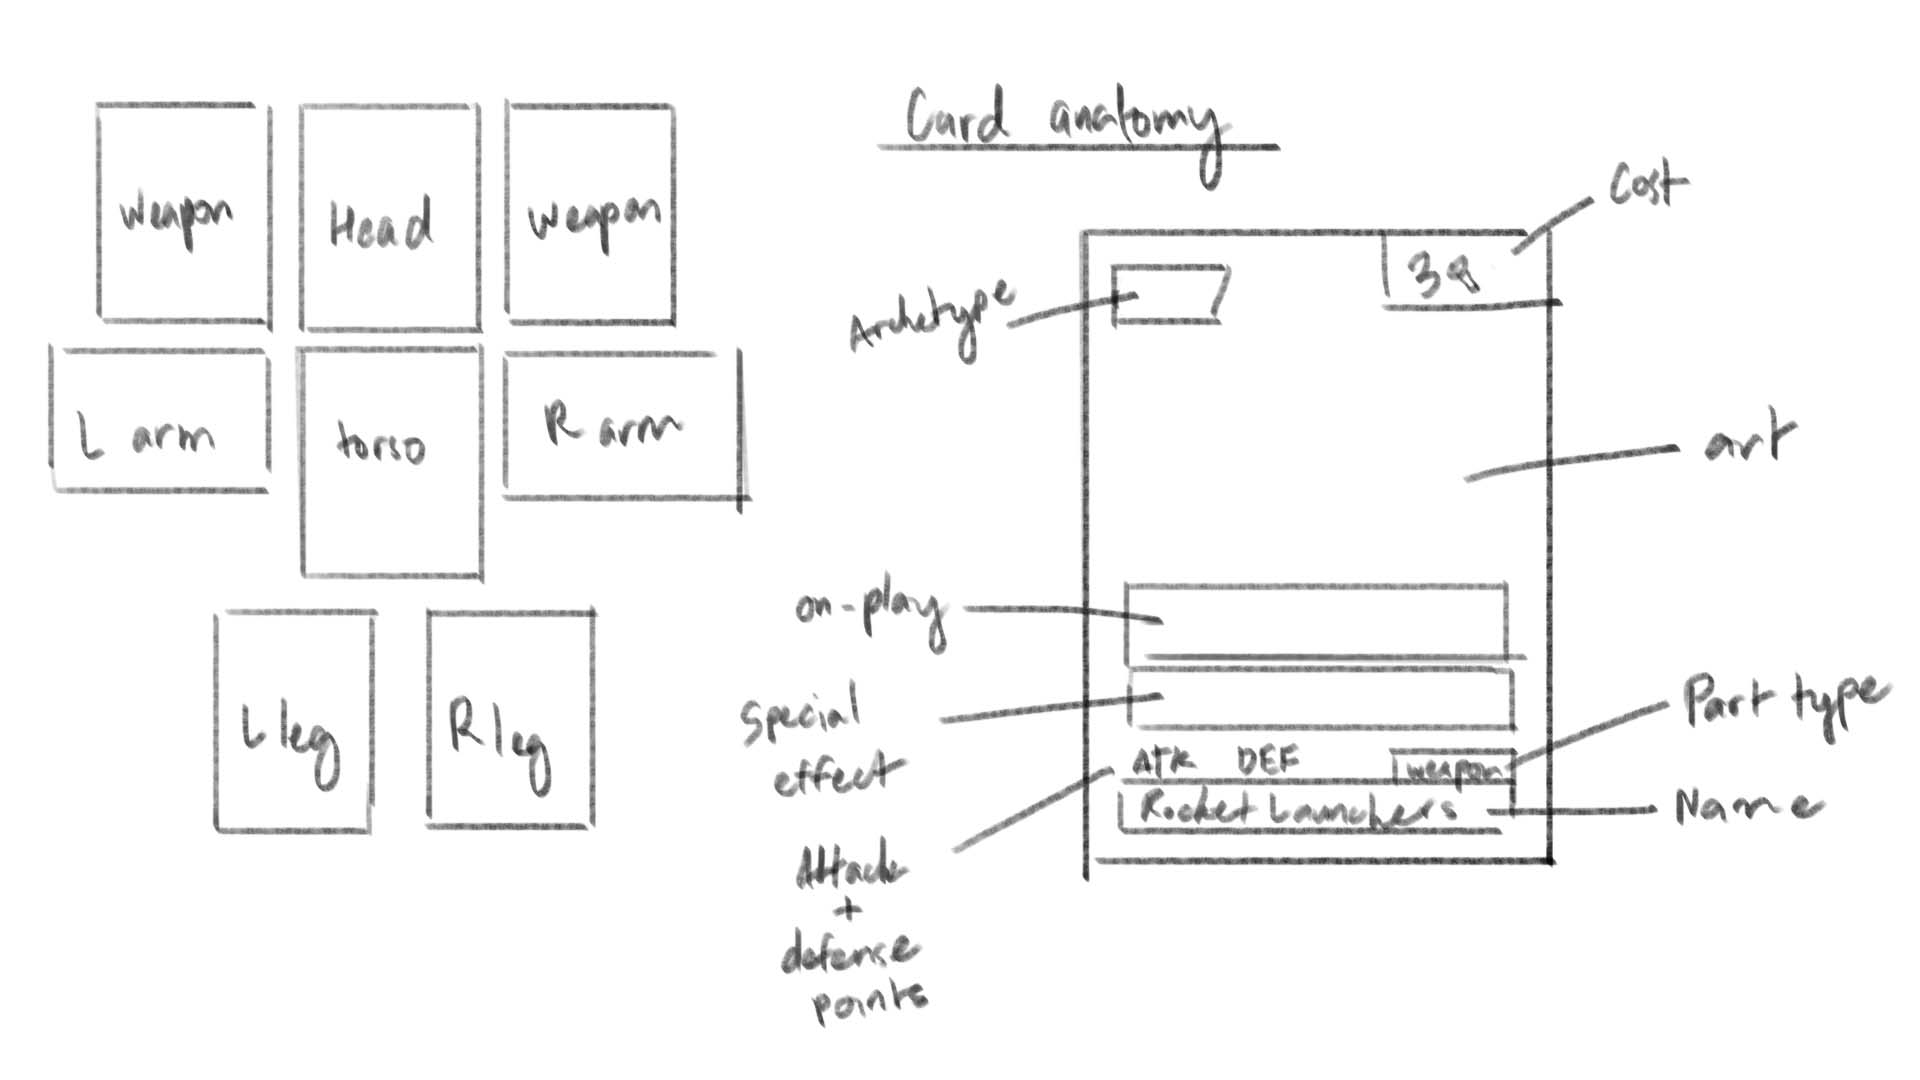 Weapon
Head
Weapon
L arm
torso
R arm
L leg
R leg
Card anatomy
Cost
Archetype
art
on-play
Special
effect
ATK DEF
weapon
Part type
Rocket Launchers
Name
Attack
+
defense
points